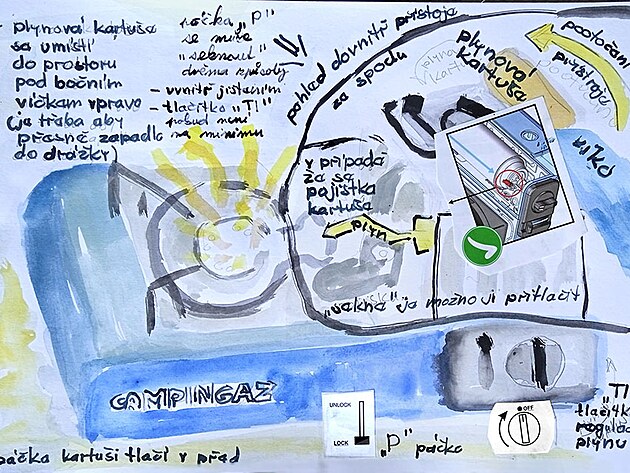 plynová kartuša
sa umisti
do prostoru
pod bočním
víčkam vpravo
(ja traba aby
přasně zapadla
do drážky)
páčka "P"
se může
"seknout"
dvěma způsoby
- uvnitř jištěním
- tlačítko "TI"
pokud není
na minimu
pohled dovnitř přístroje
za spodu
plynová
kartuša
pootočení
přístroje
víko
v případě
ža sa
pajistka
kartuša
plyn
"sakna" ja možno ji přitlačit
CAMPINGAZ
UNLOCK
LOCK
"P" páčka
OFF
"TI"
plynu
páčka kartuši tlačí v před